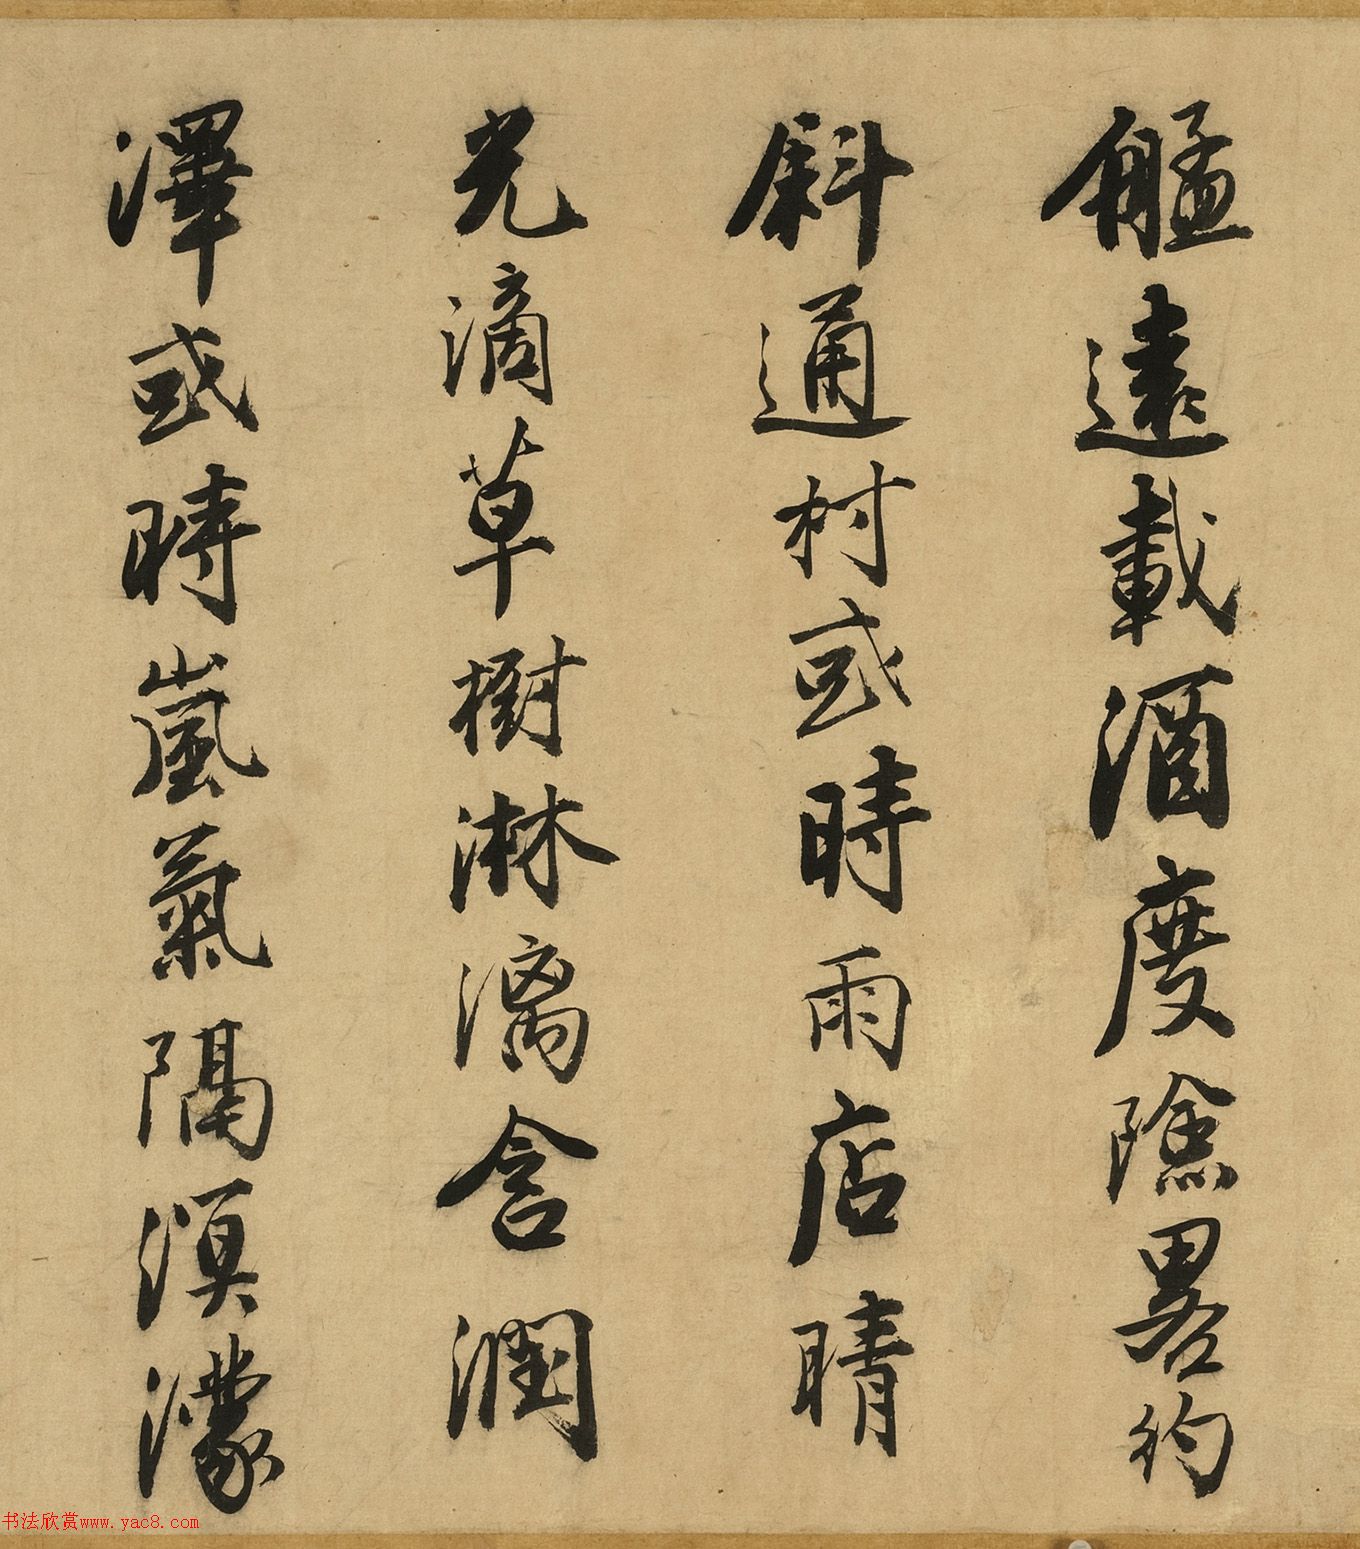 艋遠載酒度陰畧彴
斜通村或時雨店晴
光滴草樹淋漓含潤
澤或時嵐氣隔溟濛
书法欣赏www.yac8.com